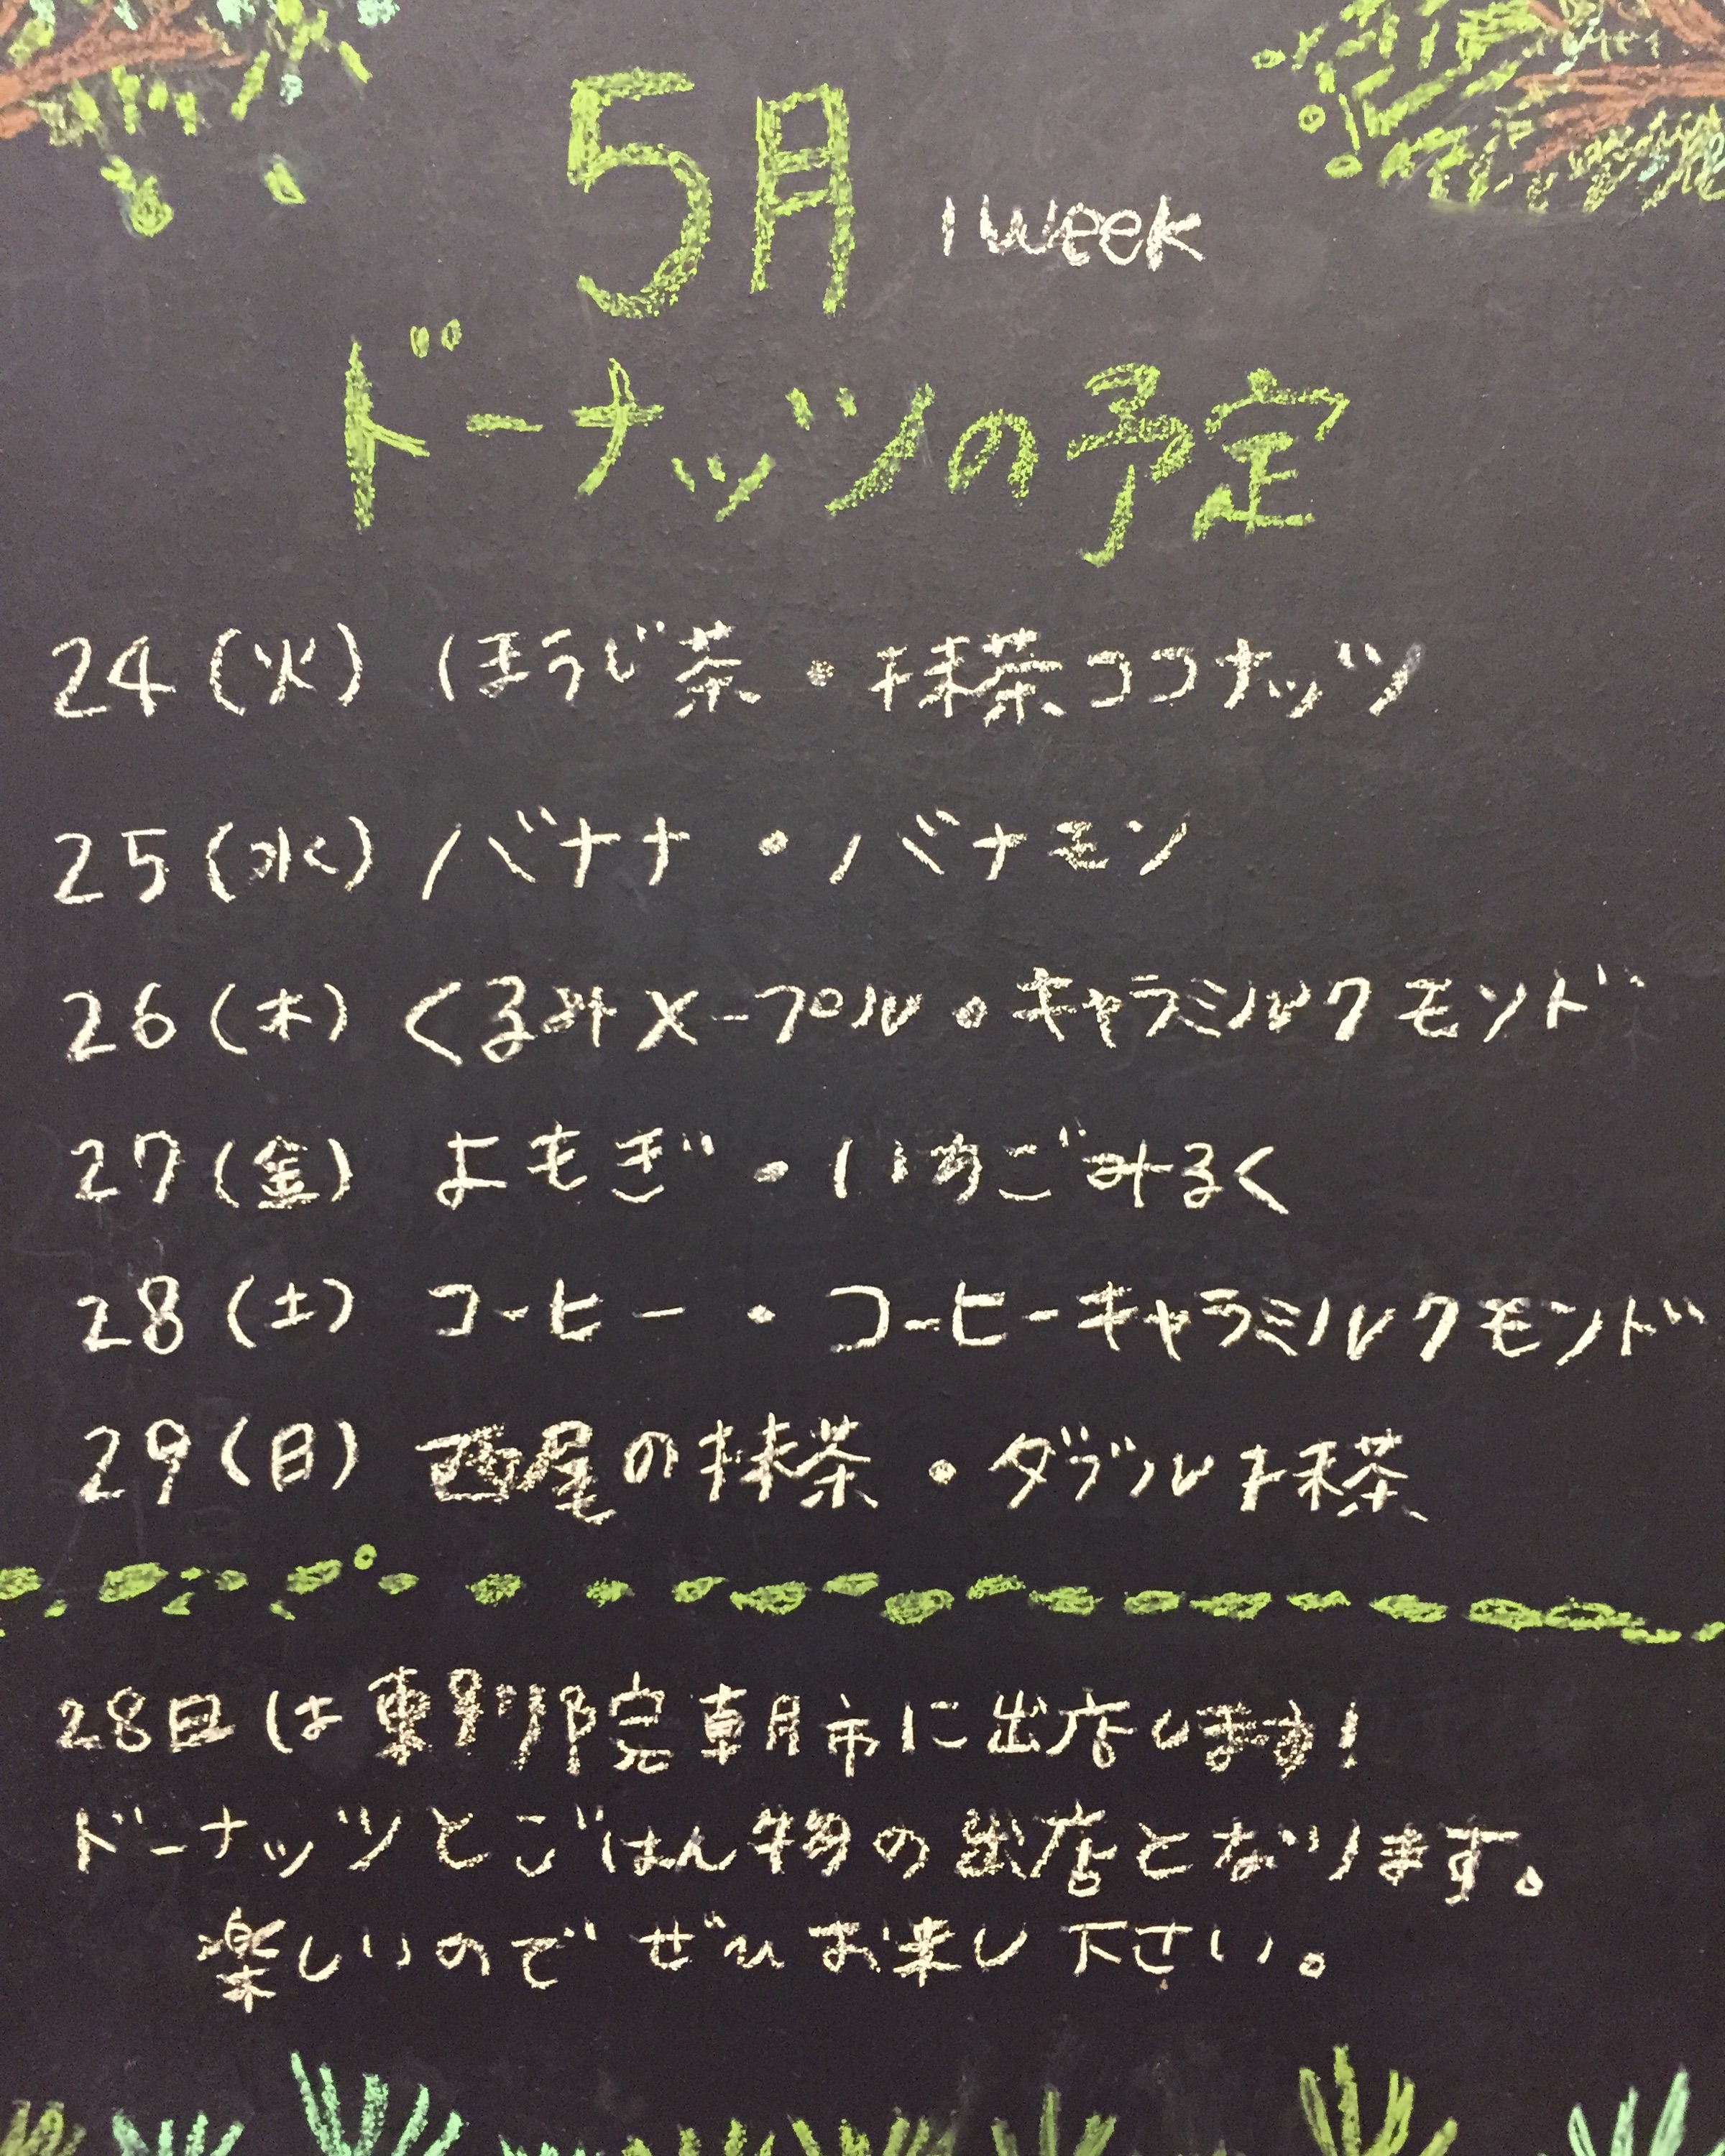 5月 1week
ドーナッツの予定
24(火) ほうじ茶・抹茶ココナッツ
25(水) バナナ・バナモン
26(木) くるみメープル・キャラミルクモンド
27(金) よもぎ・いちごみるく
28(土) コーヒー・コーヒーキャラミルクモンド
29(日) 西尾の抹茶・ダブル抹茶
28日は東別院朝市に出店します!
ドーナッツとごはん物の出店となります。
楽しいのでぜひお来し下さい。